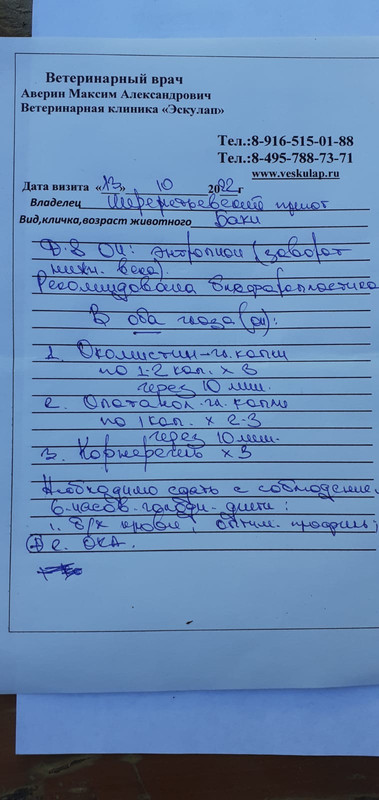 Ветеринарный врач
Аверин Максим Александрович
Ветеринарная клиника «Эскулап»
Тел.:8-916-515-01-88
Тел.:8-495-788-73-71
www.veskulap.ru
Дата визита «13» 10 2022г
Владелец Шереметьевский приют
Вид,кличка,возраст животного Баки
Д.S OU: энтропион (заворот
нижн. века).
Рекомендована блефаропластика
В оба глаза (ou):
1. Окомистин-гл. капли
по 1-2 кап. x 3
через 10 мин.
2. Опатанол-гл. капли
по 1 кап. x 2-3
через 10 мин.
3. Корнерегель x 3
Необходимо сдать с соблюдение.
6-часов. голодн. диеты:
1. Б/х крови, оптим. профиль;
2. ОКА.